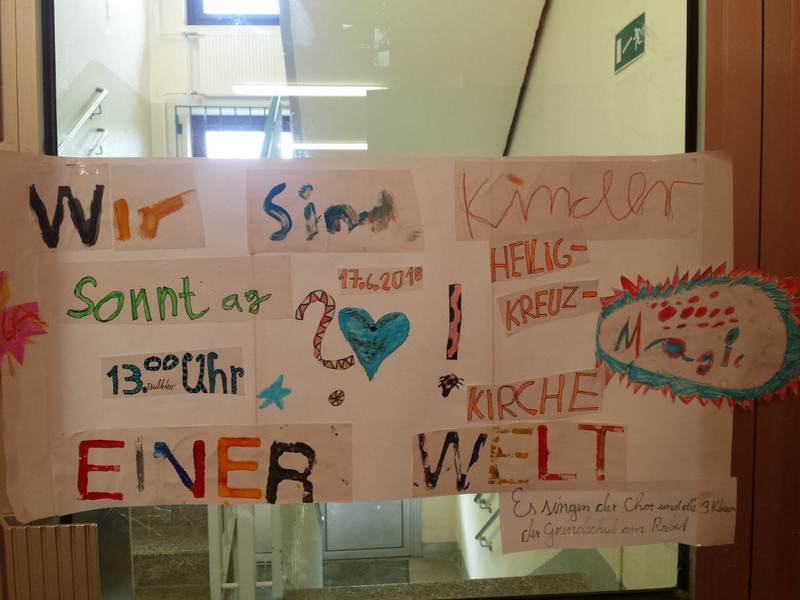 Wir Sind Kinder
Sonntag 17.6.2018
HEILIG-
KREUZ-
KIRCHE
13.00 Uhr
Magic
EINER WELT
Es singen der Chor und die 3 Klassen
der Grundschule am Rabet